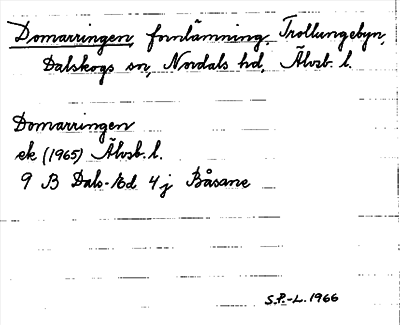 Domarringen, fornlämning, Trollungebyn,
Dalskogs sn, Nordals hd, Älvsb. l.
Domarringen
ek (1965) Älvsb. l.
9 B Dals-Ed 4 j Båsane
S.P.-L. 1966